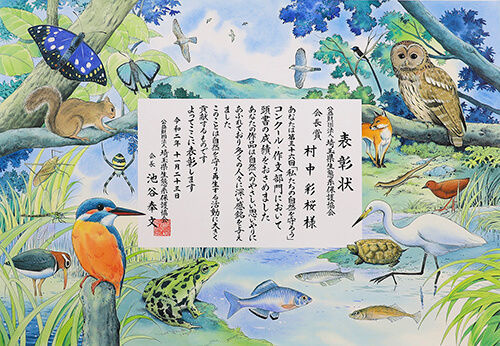 表彰状
公益財団法人埼玉県生態系保護協会
会長賞
村中彩桜様
あなたは第三十六回「私たちの自然を守ろう」
コンクール作文部門において
頭書の成績をおさめました
あなたの作品は自然へのやさしい思いやりに
あふれており多くの人々に深い感銘を与え
ました
このことは自然を守り再生する活動に大きく
貢献するものです
よってここに表彰します
令和二年十一月二十三日
公益財団法人埼玉県生態系保護協会
会長 池谷奉文